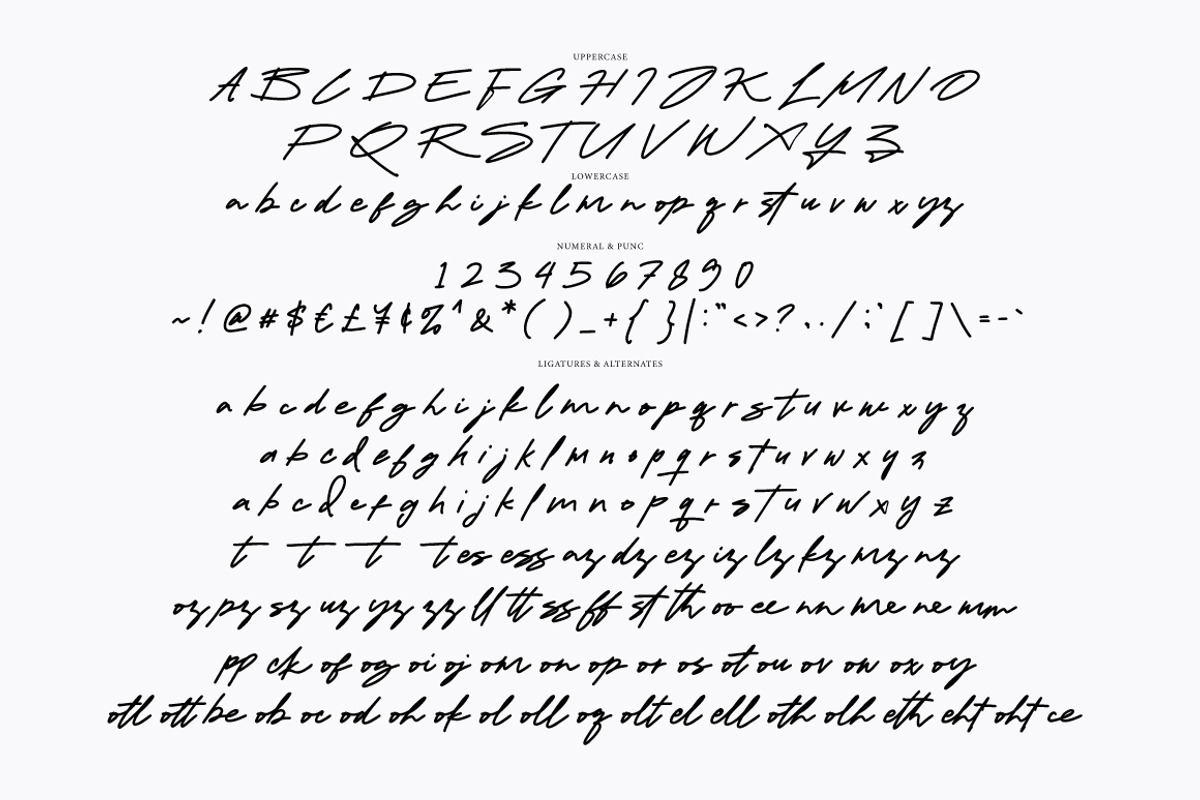 UPPERCASE
A B C D E F G H I J K L M N O
P Q R S T U V W X Y Z
LOWERCASE
a b c d e f g h i j k l m n o p q r s t u v w x y z
NUMERAL & PUNC
1 2 3 4 5 6 7 8 9 0
~ ! @ # $ € £ ¥ ¢ % ^ & * ( ) _ + { } | : " < > ? , . / ; ' [ ] \ = - `
LIGATURES & ALTERNATES
a b c d e f g h i j k l m n o p q r s t u v w x y z
a b c d e f g h i j k l m n o p q r s t u v w x y z
a b c d e f g h i j k l m n o p q r s t u v w x y z
t t t t es ess az dz ez iz lz kz mz nz
oz pz sz uz yz zz ll tt ss ff st th oo ee nn me ne mm
pp ck of og oi oj om on op or os ot ou ov ow ox oy
otl ott be ob oc od oh ok ol oll oq olt el ell oth olh eth eht oht ce